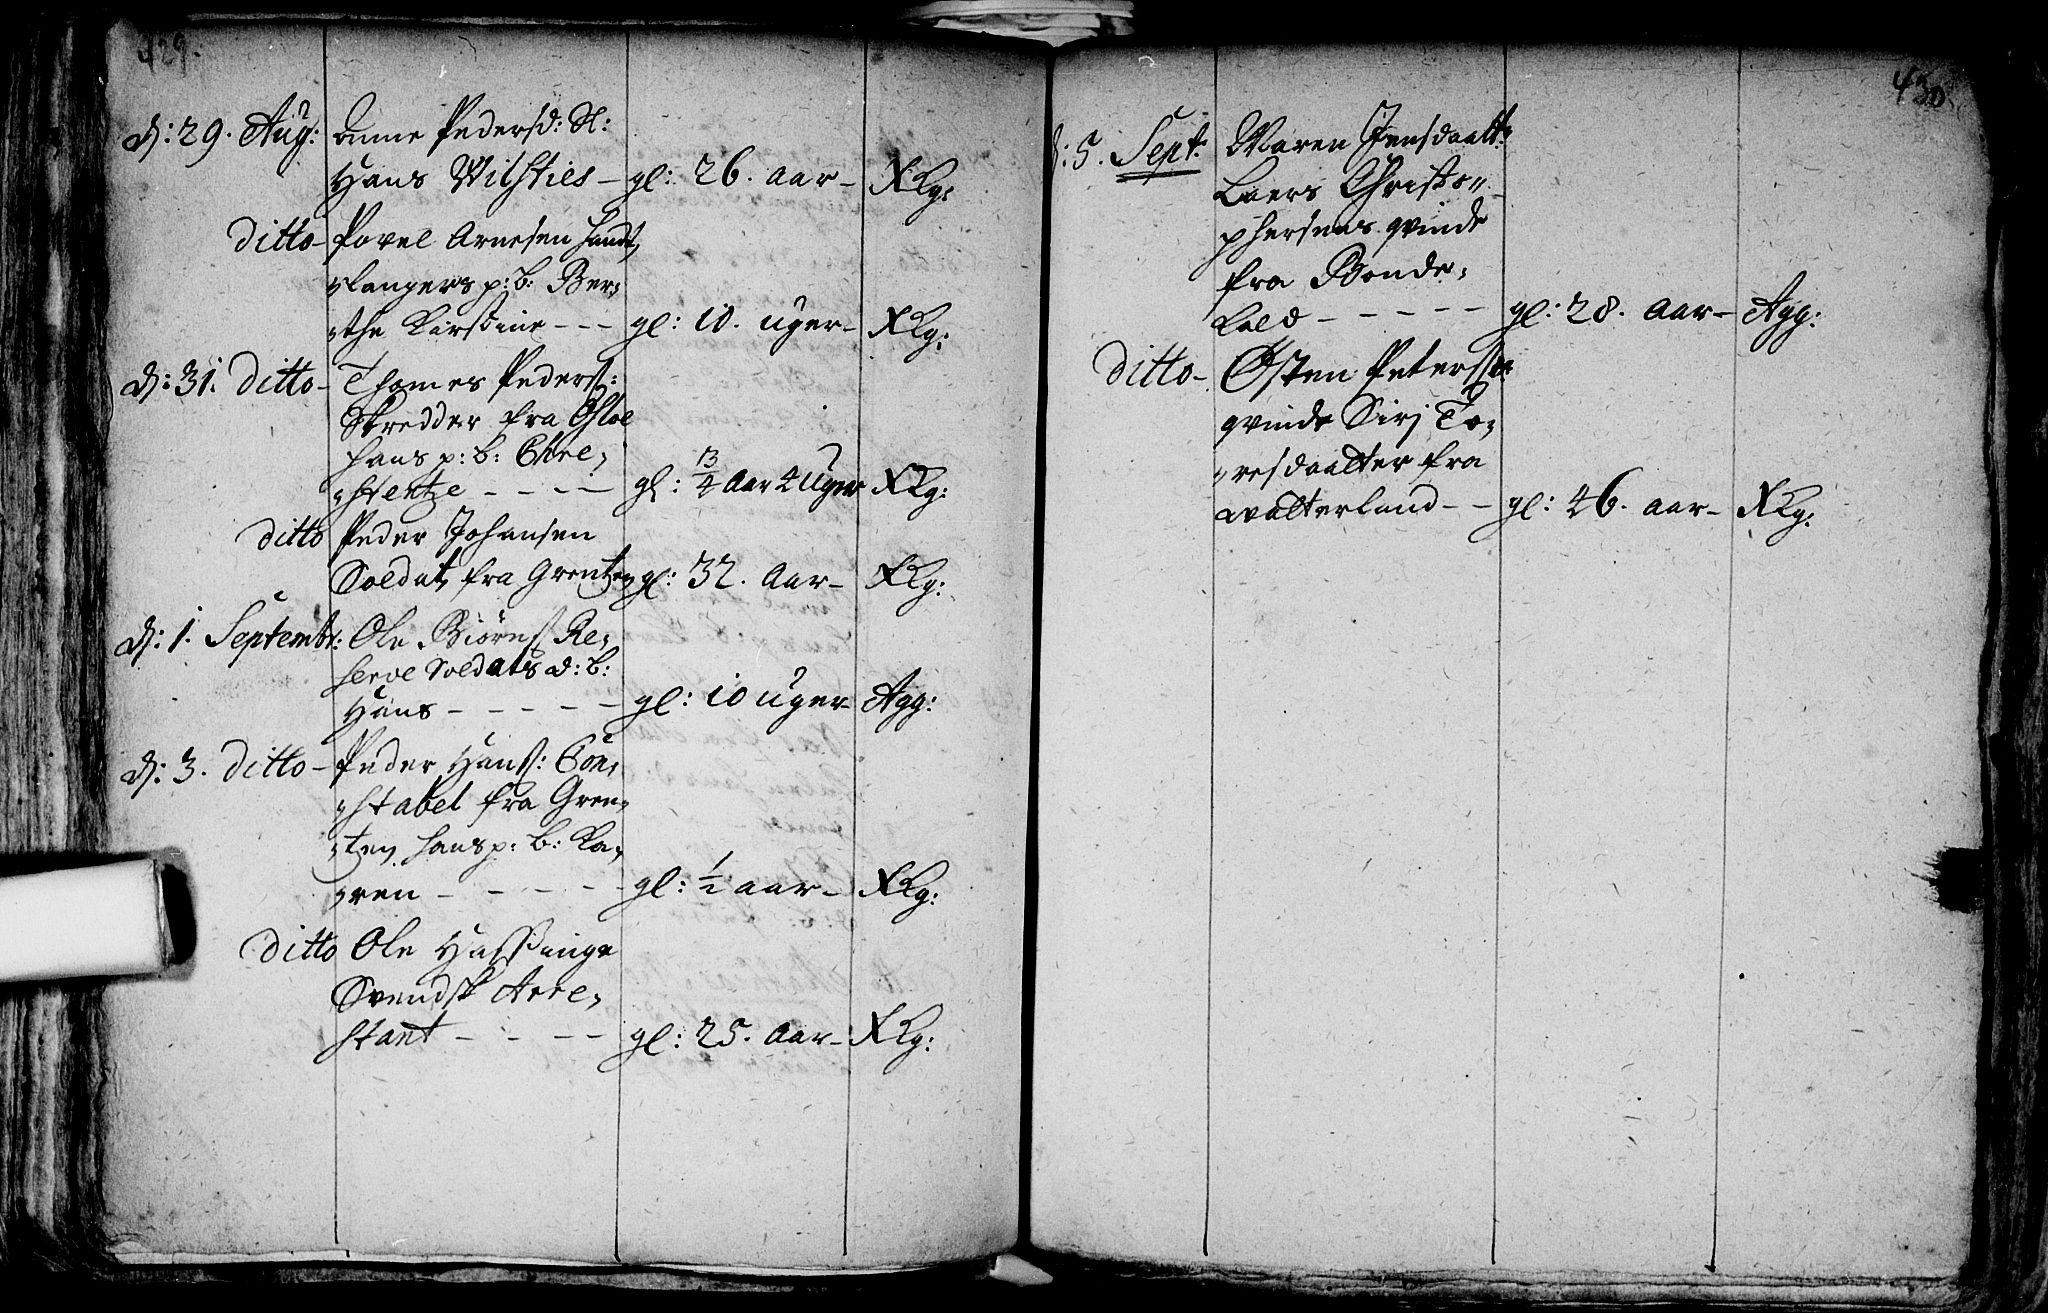 429.
d: 29. Aug: Anne Pedersd: Sl:
Hans Wilsties – gl: 26. aar – XKg:
ditto – Povel Arnesen Handt
langers p: b: Ber,
the Kirstine – – – gl: 10. uger – XKg:
d: 31. ditto – Thomes Peders:
Skredder fra Osloe
hans p: b: Chre,
stentze – – – – gl: 13/4 Aar 4 Uger XKg:
ditto Peder Johansen
Soldat fra Grentzen gl: 32. Aar – XKg:
d: 1. Septembr: Ole Biørns Re,
serve Soldats d: b:
Hans – – – – – gl: 10 Uger – Agg:
d: 3. ditto – Peder Hans: Con,
stabel fra Gren,
tzen hans p: b: Ka,
ren – – – – – gl: 1/2 aar – XKg:
ditto Ole Hassinge
Svendsk Arre,
stant – – – – gl: 25. Aar – XKg:
430.
d: 5. Sept: Maren Jensdaatt:
Laers Christo,,
phersens qvinde
fra Bonde,
Lald – – – – – gl: 28. aar – Agg:
ditto – Østen Peters
qvinde Sirj To,
resdaatter fra
watterland – – gl: 46. aar – XKg: